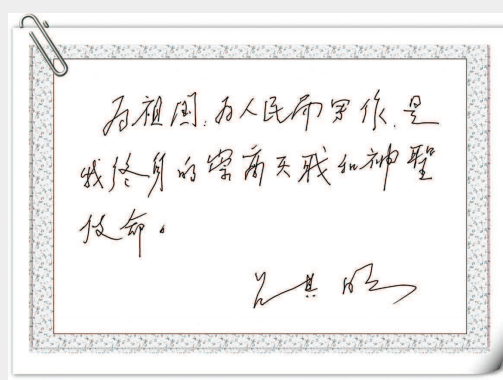 为祖国、为人民而写作，是
我终身的崇高天职和神聖
使命。
吕其明